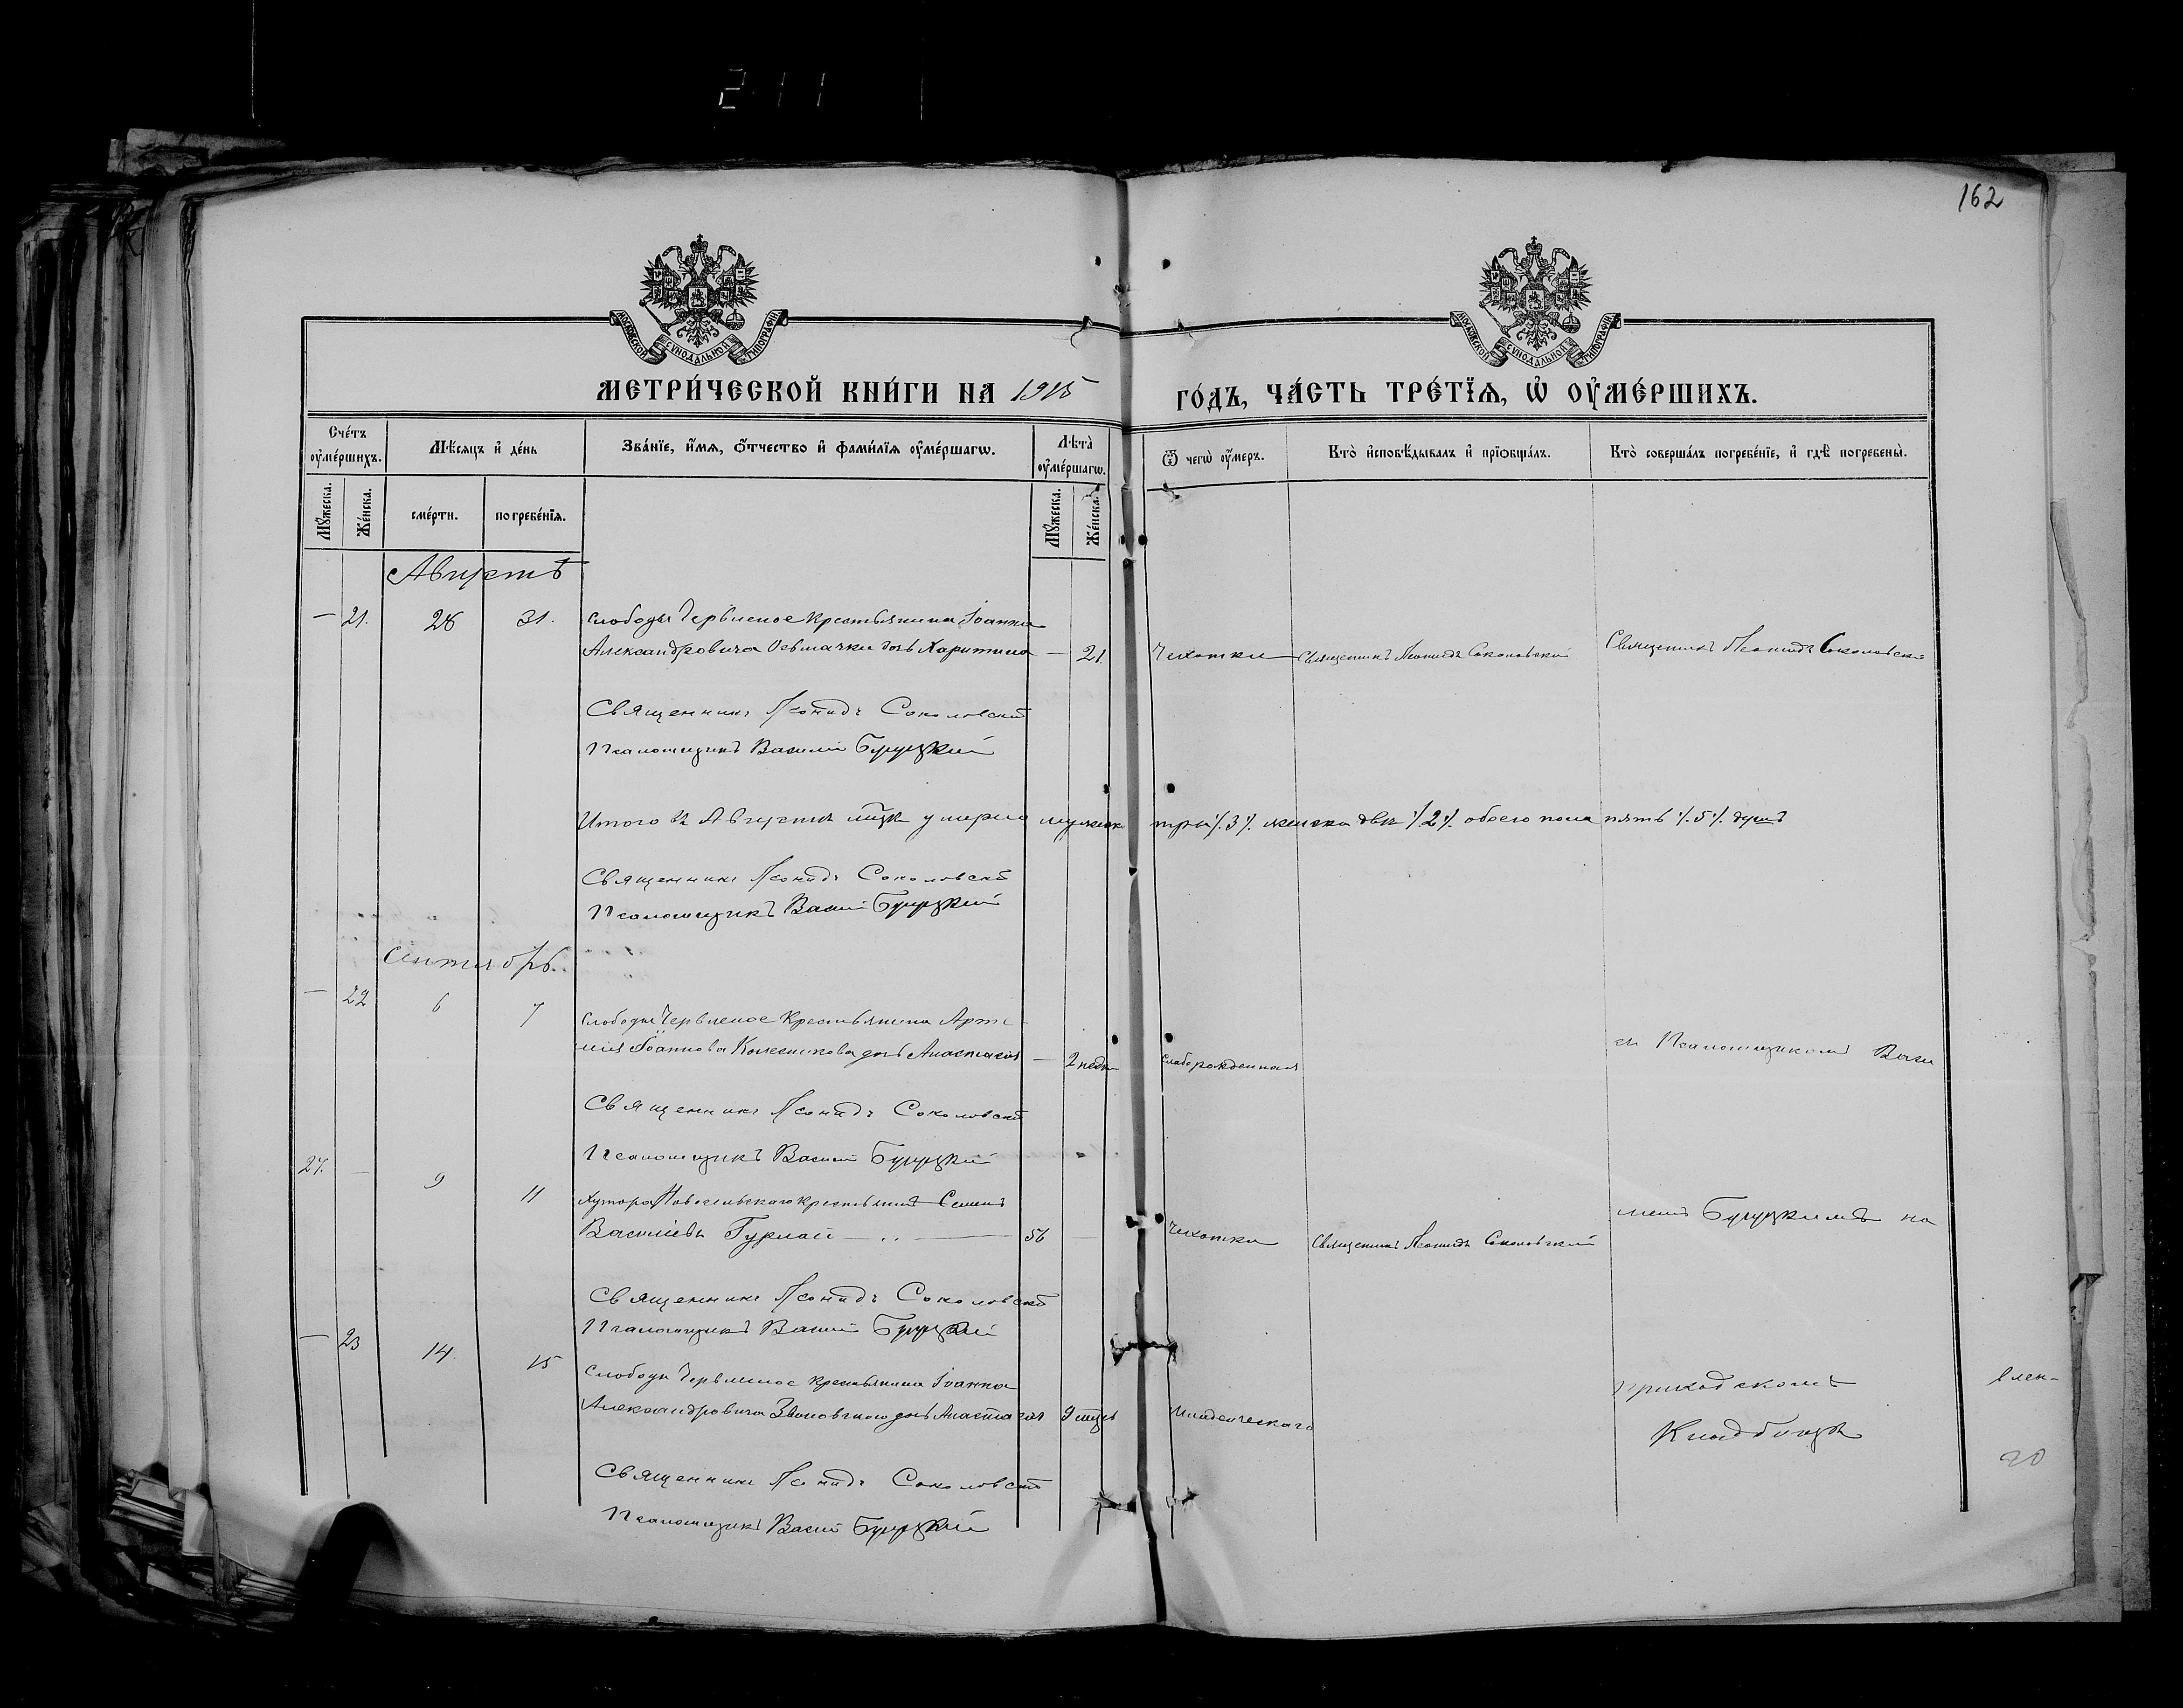 211
162
МОСКОВСКОЙ СѴНОДАЛЬНОЙ ТИПОГРАФІИ
МОСКОВСКОЙ СѴНОДАЛЬНОЙ ТИПОГРАФІИ
МЕТРИ́ЧЕСКОЙ КНИ́ГИ НА 1915 ГО́ДЪ, ЧА́СТЬ ТРЕ́ТЇѦ, Ѡ҆ ОУ҆МЕ́РШИХЪ.
Сче́тъ оу҆ме́ршихъ.
Мѣ́сяцъ и҆ де́нь
Зва́нїе, и҆́мѧ, ѻ҆́тчество и҆ фами́лїѧ оу҆ме́ршагѡ.
Лѣта̀ оу҆ме́ршагѡ.
Ѿ чегѡ̀ оу҆́меръ.
Кто̀ и҆сповѣ́дывалъ и҆ прїѡбща́лъ.
Кто̀ соверша́лъ погребе́нїе, и҆ гдѣ̀ погребены̀.
Мꙋ́жеска.
Же́нска.
сме́рти.
погребе́нїѧ.
Мꙋ́жеска.
Же́нска.
Августъ
— 21. 28 31. Слободы Червленое крестьянина Іоанна
Александровича Осьмачки дочь Харитина — 21 Чахотки Священникъ Леонидъ Соколовскій Священникъ Леонидъ Соколовскій
Священникъ Леонидъ Соколовскій
Псаломщикъ Василій Буруцкій
Итого въ Августѣ мцѣ умерло мужеска три ⁒3⁒ женска двѣ ⁒2⁒ обоего пола пять ⁒5⁒ душъ
Священникъ Леонидъ Соколовскій
Псаломщикъ Василій Буруцкій
Сентябрь.
— 22 6 7 Слободы Червленое крестьянина Арте-
мія Іоаннова Колесникова дочь Анастасія — 2 недѣли слаборожденная съ Псаломщикомъ Васи
Священникъ Леонидъ Соколовскій
Псаломщикъ Василій Буруцкій
27. — 9 11 Хутора крестьянинъ Семенъ
Васильевъ Гурлай — 56 — Чахотки Священникъ Леонидъ Соколовскій ліемъ Буруцкимъ на
Священникъ Леонидъ Соколовскій
Псаломщикъ Василій Буруцкій
— 23 14. 15 Слободы Червленое крестьянина Іоанна
Александровича дочь Анастасія 9 мцевъ Младенческаго приходскомъ
Кладбищѣ
Священникъ Леонидъ Соколовскій
Псаломщикъ Василій Буруцкій
20